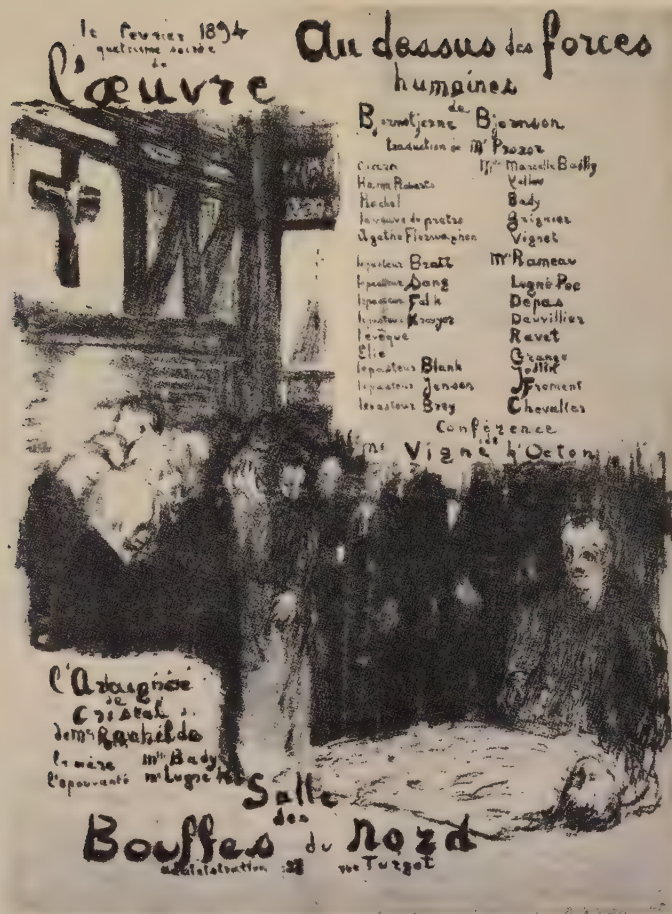 le fevrier 1894
quatrieme soirée
de
l'œuvre
Au dessus des forces
humaines
de
Bjornstjerne Bjornson
traduction de Mr Prozor
Mlle Marcelle Bailly
Hanna Roberts
Rachel Bady
la veuve du pretre Grignier
Agathe Vignet
le pasteur Bratt Mr Rameau
le pasteur Sang Lugné Poe
le pasteur Falk Depas
le pasteur Kroyer Dauvillier
l'évêque Ravet
Elie Grange
le pasteur Blank
le pasteur Jensen Froment
le pasteur Brey Chevalles
Conférence
de
Mr Vigné d'Octon
l'Araignée
de
Cristal
de Mme Rachilde
la mère Mlle Bady
l'épouvanté Mr Lugné Poe
Salle
des
Bouffes du Nord
administration rue Turgot